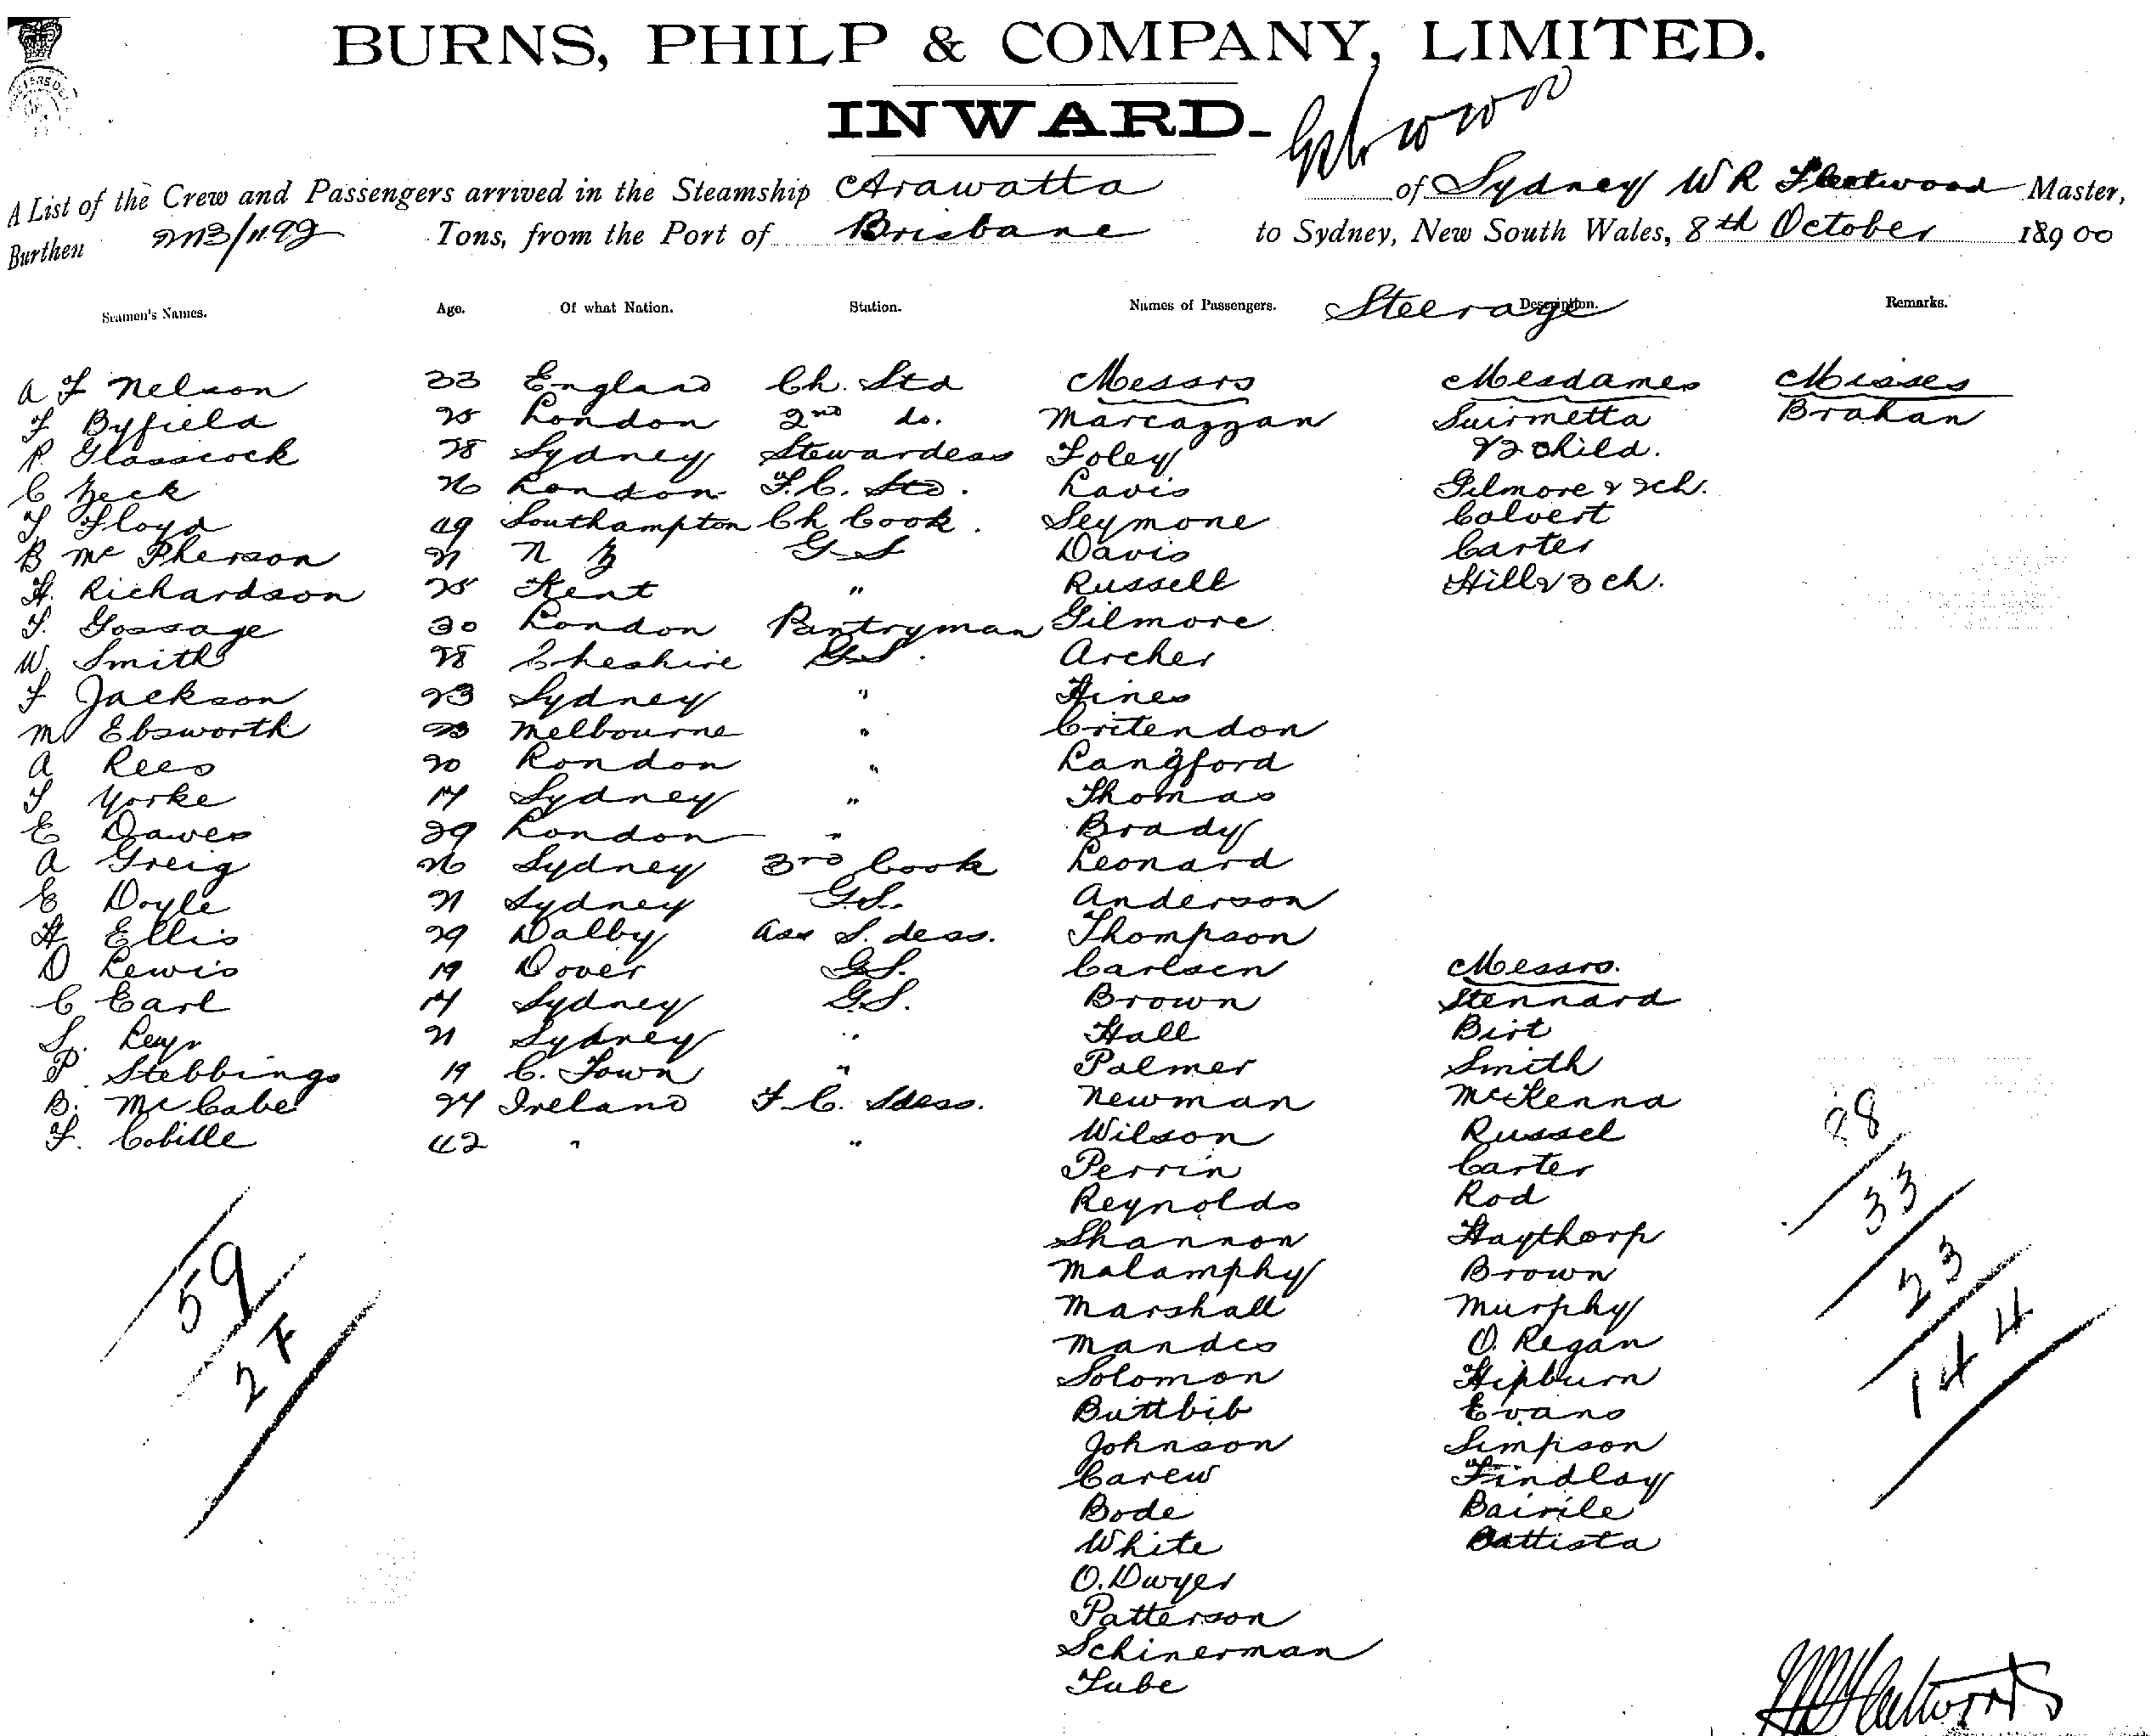 BURNS, PHILP & COMPANY, LIMITED.
INWARD.
A List of the Crew and Passengers arrived in the Steamship Arawatta of Sydney W R Fleetwood Master,
Burthen 2113/1192 Tons, from the Port of Brisbane to Sydney, New South Wales, 8th October 18900
Seamen's Names. Age. Of what Nation. Station. Names of Passengers. Steerage Description. Remarks.
A F Nelson 33 England Ch. Std Messrs Mesdames Misses
F Byfield 25 London 2nd do. Marcazzan Suirmetta Brahan
R. Glasscock 28 Sydney Stewardess Foley & child.
C Zeck 26 London F.C. Std. Lavis Gilmore & 2ch.
T Floyd 49 Southampton Ch Cook. Seymone Calvert
B Mc Pherson 21 N Z G S Davis Carter
H. Richardson 25 Kent " Russell Hill & 3 ch.
T. Gossage 30 London Pantryman Gilmore
W. Smith 28 Cheshire G.S. Archer
F Jackson 23 Sydney " Hines
M Ebsworth 23 Melbourne " Critendon
A Rees 20 London " Langford
T Yorke 17 Sydney " Thomas
E Dawes 29 London " Brady
A Greig 26 Sydney 3rd Cook Leonard
E Doyle 21 Sydney G.S. Anderson
H Ellis 29 Dalby Ass S. dess. Thompson
D Lewis 19 Dover G.S. Carlsen Messrs.
C Earl 17 Sydney G.S. Brown Stennard
S. 21 Sydney " Hall Birt
P. Stebbings 19 C. Town " Palmer Smith
B. McCabe 24 Ireland F.C. Sdess. Newman McKenna
F. Cobille 42 " " Wilson Russel
Perrin Carter
Reynolds Rod
Shannon Haythorp
Malamphy Brown
Marshall Murphy
Mandes O. Regan
Solomon Hipburn
Buttbib Evans
Johnson Simpson
Carew Findlay
Bode Bairile
White Battista
O. Dwyer
Patterson
Schinerman
Tube
59
27
28
33
23
144